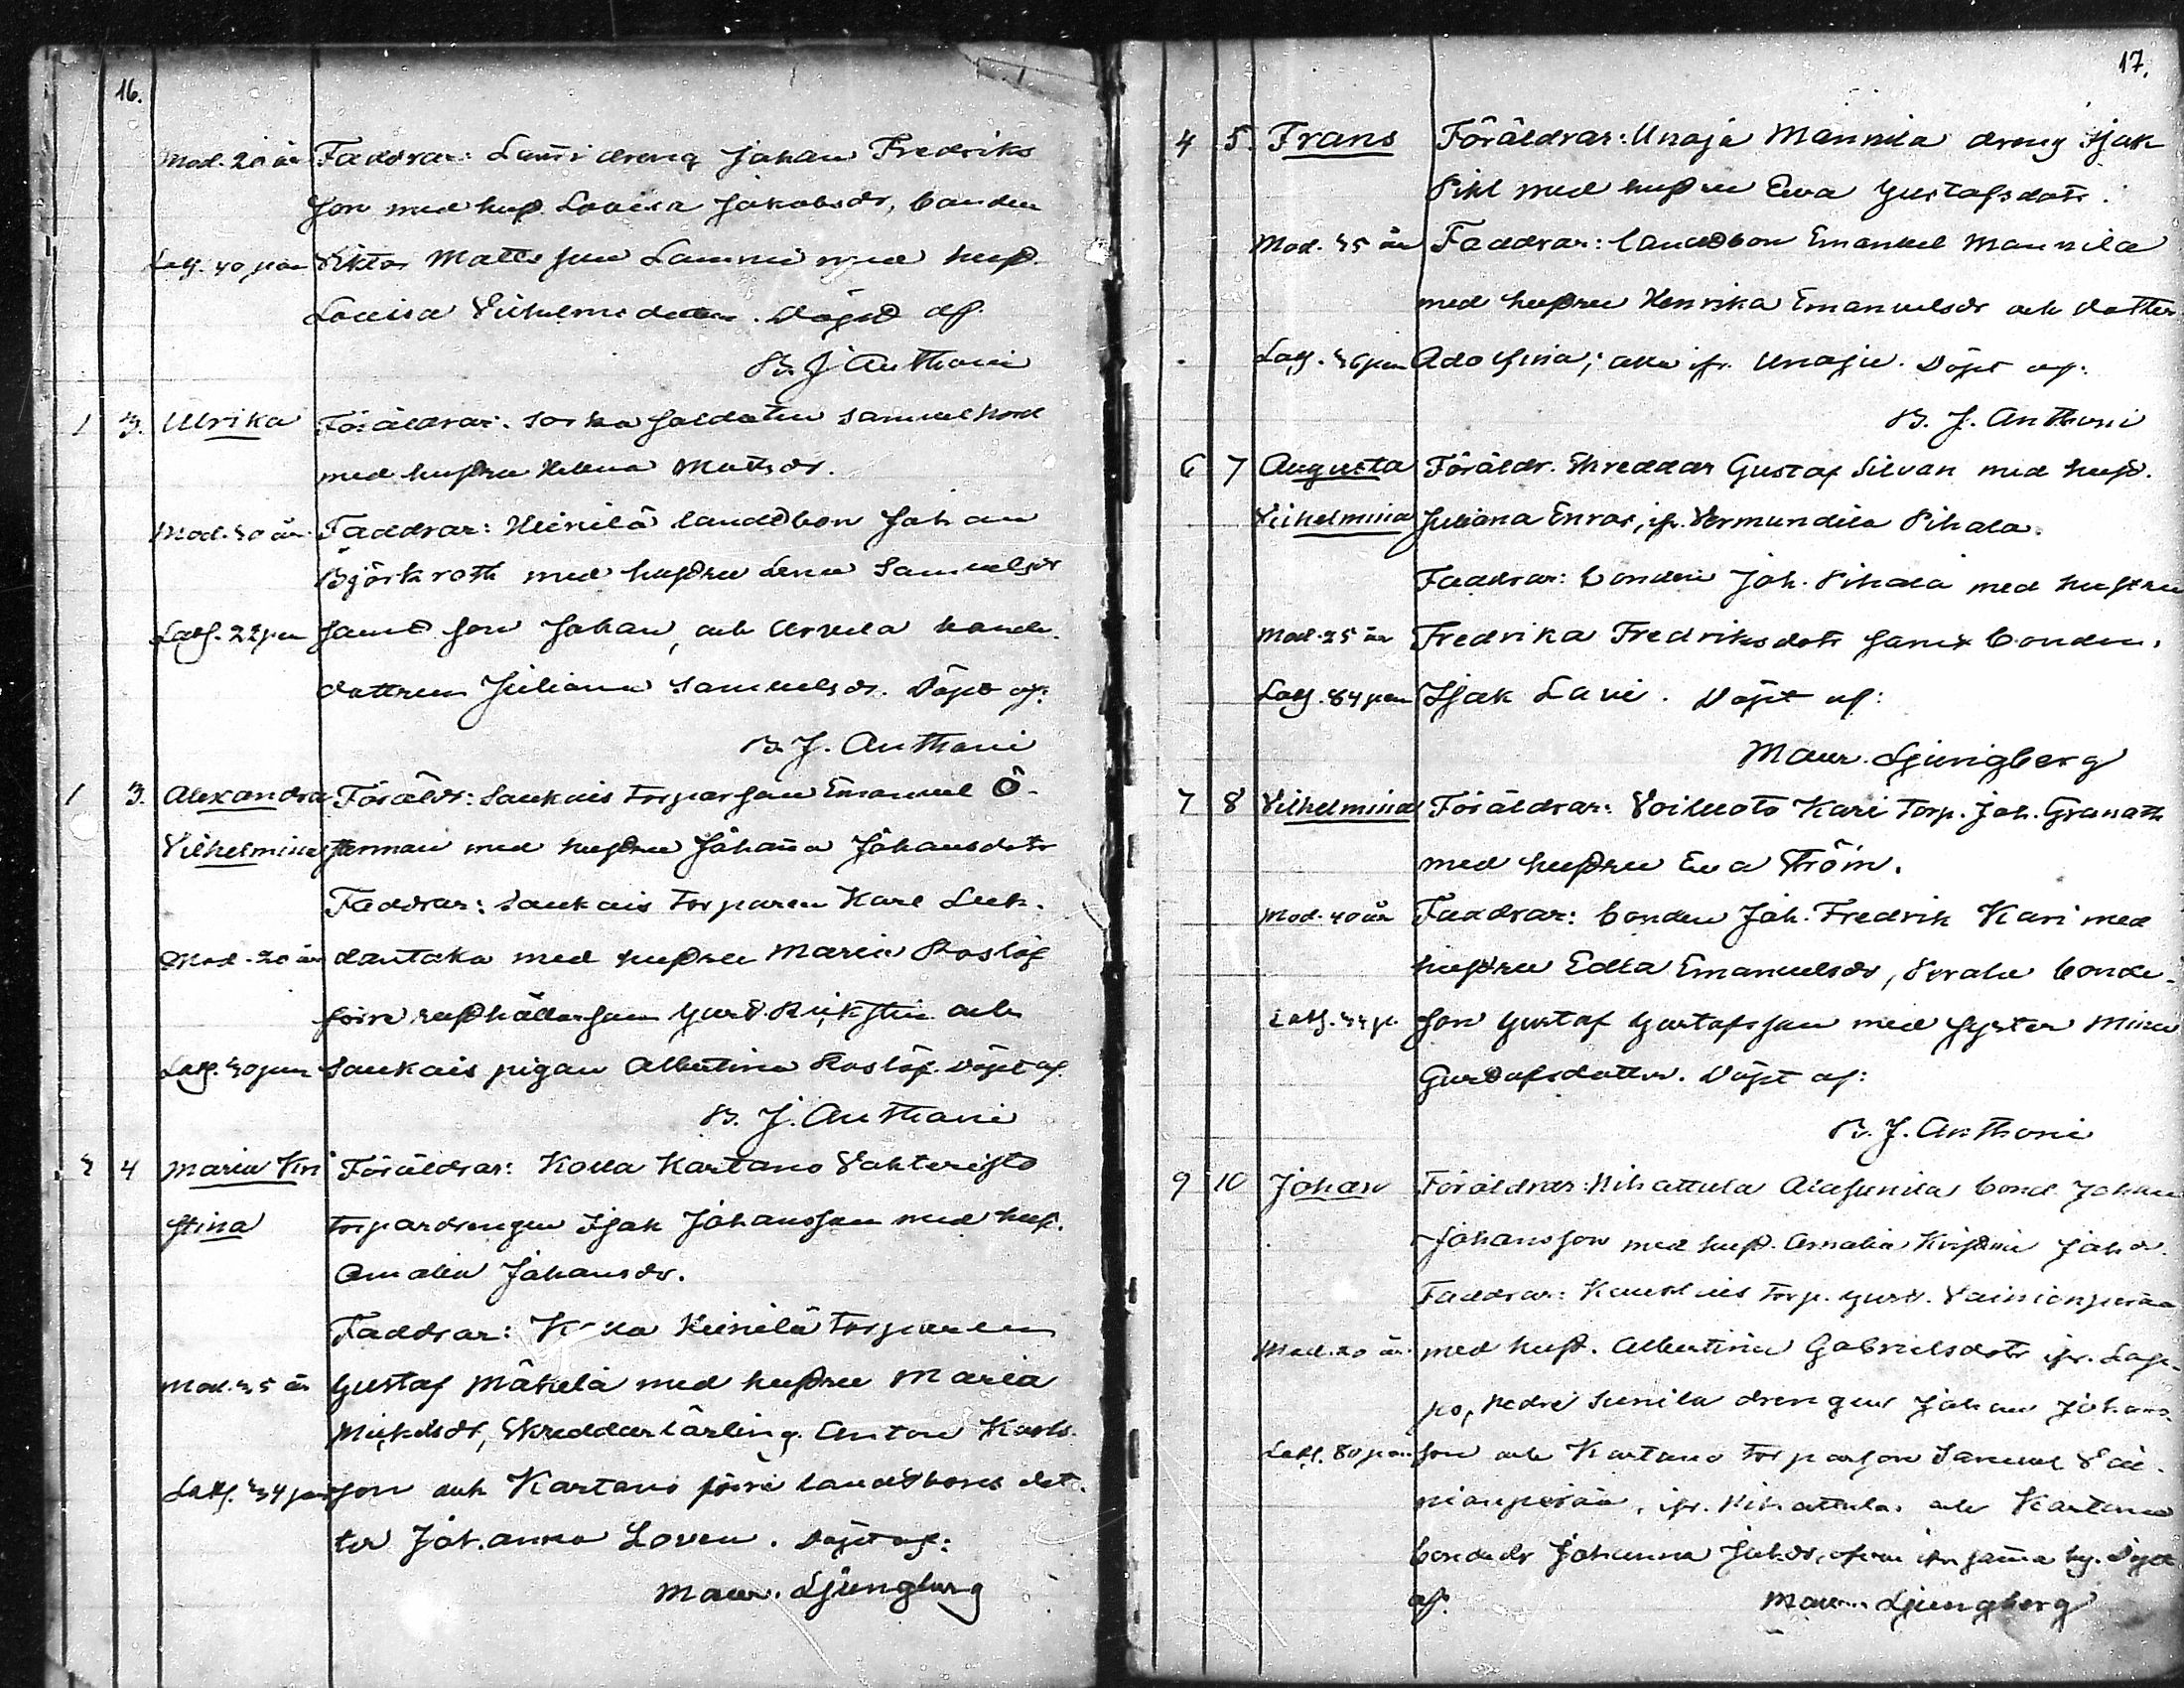 16.
Mod. 20 år Faddrar: Lauri dreng Johan Fredriks
son med hust. Lovisa Jakobsdr, bonden
Viktor Mattsson Lammi med hust.
Lovisa Vilhelmsdotter. Döpt af
B. J. Anthoni
1 3. Ulrika Föräldrar: Sorka soldaten Samuel
med hustru Helena Mattsdr.
Mod. 30 år Faddrar: Heinilä landtbon Johan
Björkroth med hustru Lena Samuelsdr
samt son Johan, och Arvela bonde
dottren Juliana Samuelsdr. Döpt af:
B. J. Anthoni
1 3. Alexandra Föräldr: Saukais torparson Emanuel Ö-
Vilhelmina sterman med hustru Johanna Johansdotr
Faddrar: Saukais torparen Karl Leh-
Mod. 20 år dantaka med hustru Maria Roslöf
förre rusthållarson Gust. och
Saukais pigan Albertina Roslöf. Döpt af.
B. J. Anthoni
3 4 Maria Kri Föräldrar: Kolla Kartano Vahteristo
stina torpardrengen Isak Johansson med hust.
Amalia Johansdr.
Faddrar: Heinilä torparen
Mod. 35 år Gustaf Mäkelä med hustru Maria
Mickelsdr, Skreddarlärling Anton Karls
son och Kartano förre landtbons dot-
ter Johanna Loven. Döpt af:
Maur. Ljungberg
17.
4 5. Frans Föräldrar: Unaja Mannila dreng Isak
Pihl med hustru Eva Gustafsdotr.
Mod. 35 år Faddrar: landtbon Emanuel Mannila
med hustru Henrika Emanuelsdr och dotter
Adolfina; alla ifr. Unaja. Döpt af:
B. J. Anthoni
6 7 Augusta Föräldr. Skreddar Gustaf Silvan med hust.
Vilhelmina Juliana Enros, ifr. Vermundila Pihala.
Faddrar: bonden Joh. Pihala med hustru
Mod. 25 år Fredrika Fredriksdotr samt bonden
Isak Lavi. Döpt af:
Maur. Ljungberg
7 8 Vilhelmina Föräldrar: Voiluoto Kari torp. Joh. Granath
med hustru Eva Ström.
Mod. 40 år Faddrar: bonden Joh. Fredrik Kari med
hustru Edla Emanuelsdr, bonde-
son Gustaf Gustafsson med syster Mina
Gustafsdotter. Döpt af:
B. J. Anthoni
9 10 Johan Föräldrar: Kihattula Alasunila bond. Johan
Johansson med hust. Amalia Kristina Johdr.
Faddrar: torp. Gust. Vainionperä
Mod. 20 år med hust. Albertina Gabrielsdotr ifr. Lap-
po, Nedre Sunila drengen Johan Johans
son och Kartano torparson Samuel Vai-
nionperä, ifr. Kihattula och Kartano
bondedr Johanna Johdr, ifr samma by. Döpt
af. Maur. Ljungberg